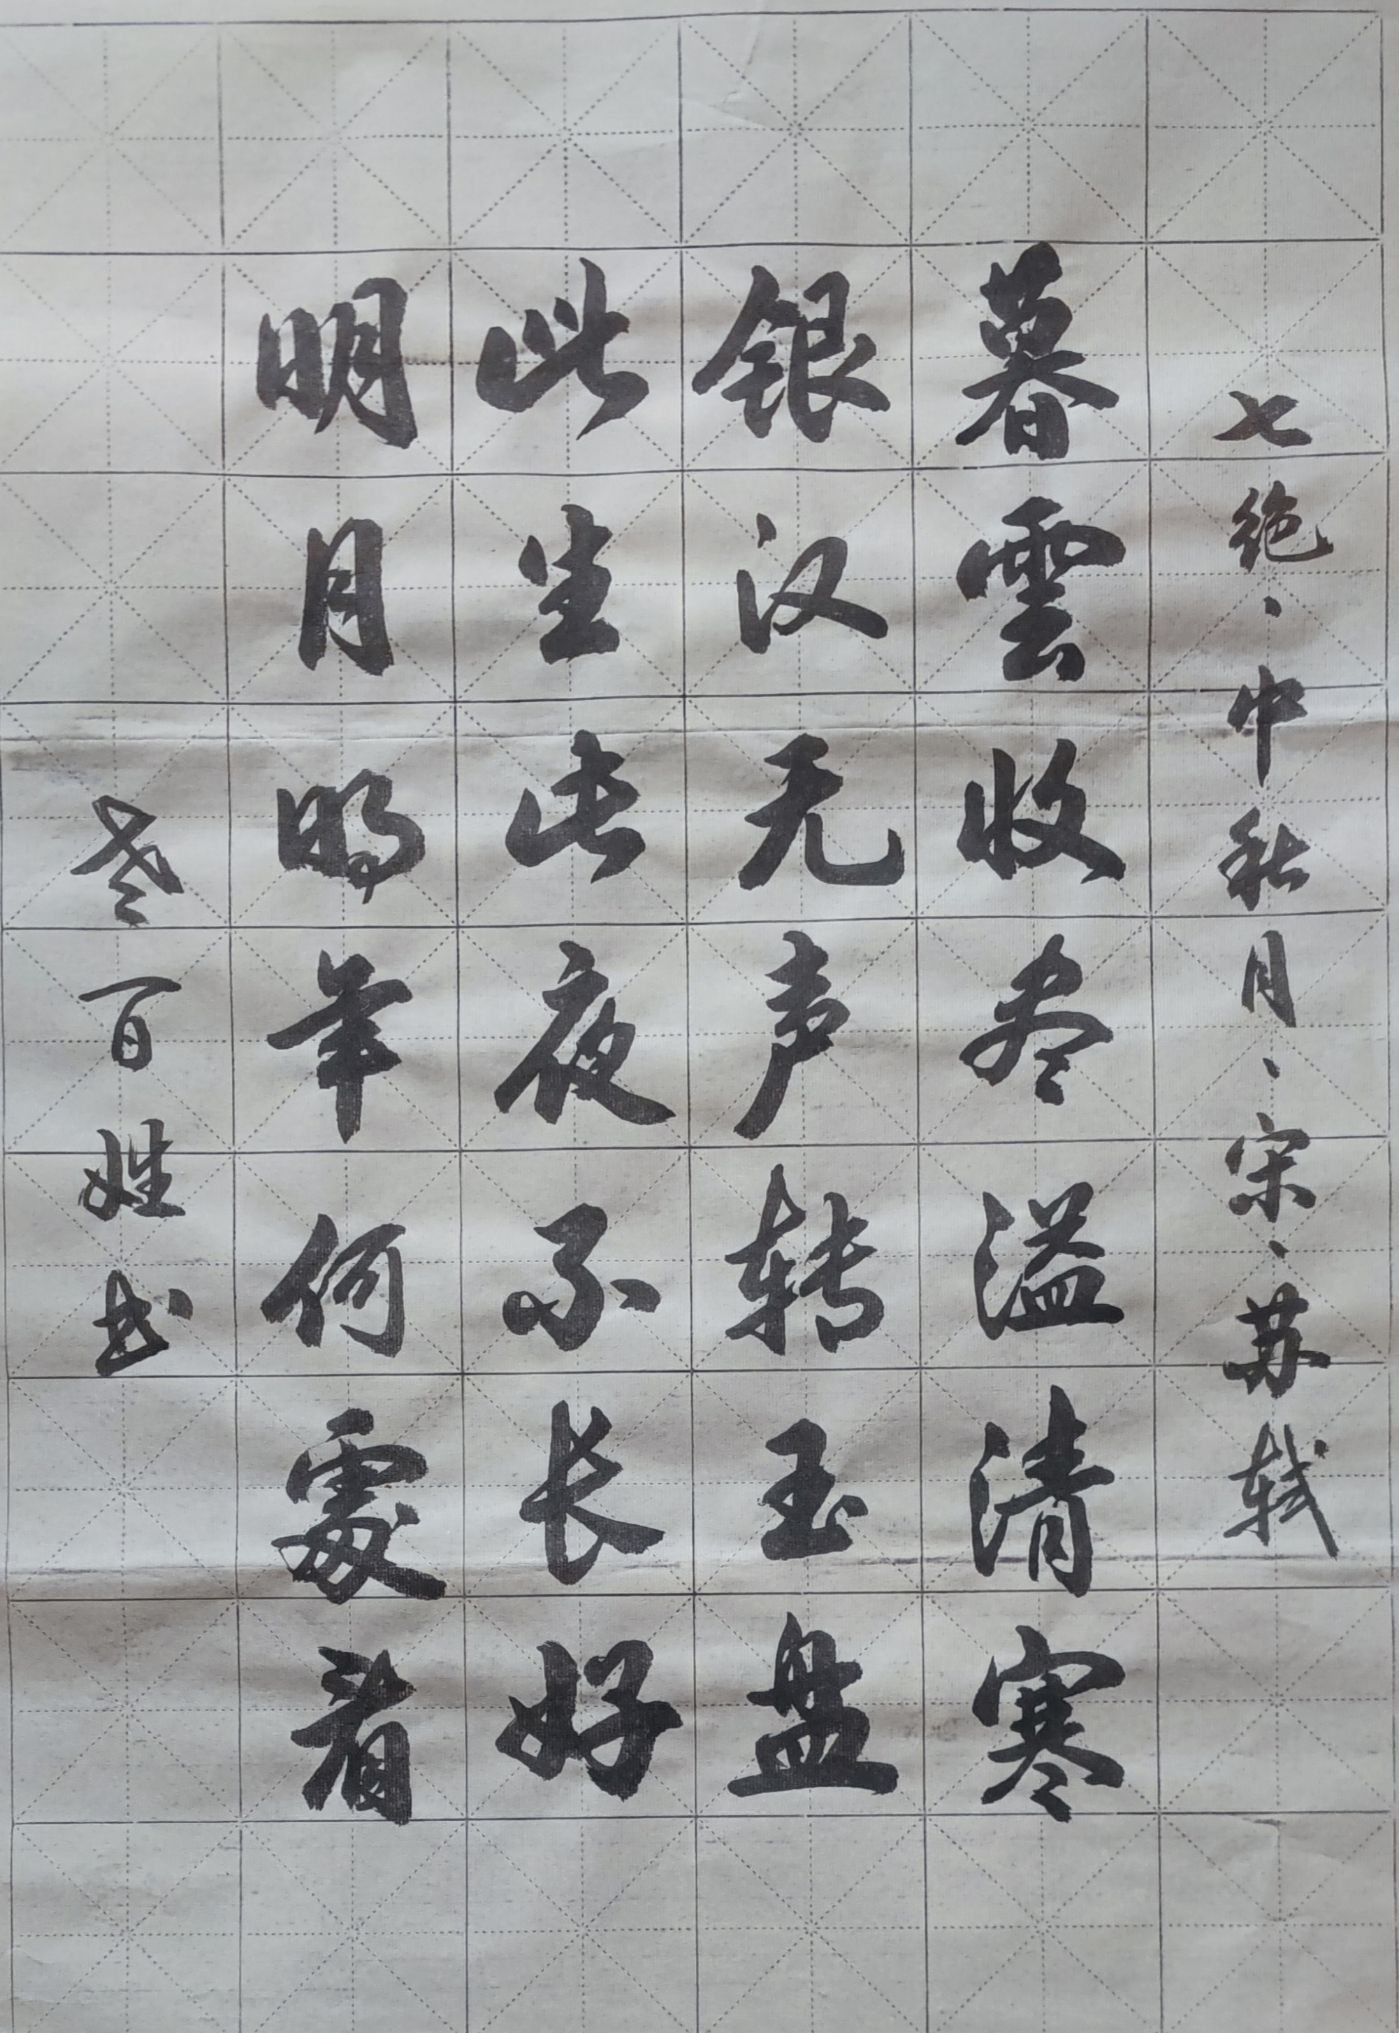 七绝·中秋月·宋·苏轼
暮雲收尽溢清寒
银汉无声转玉盘
此生此夜不长好
明月明年何處看
老百姓书